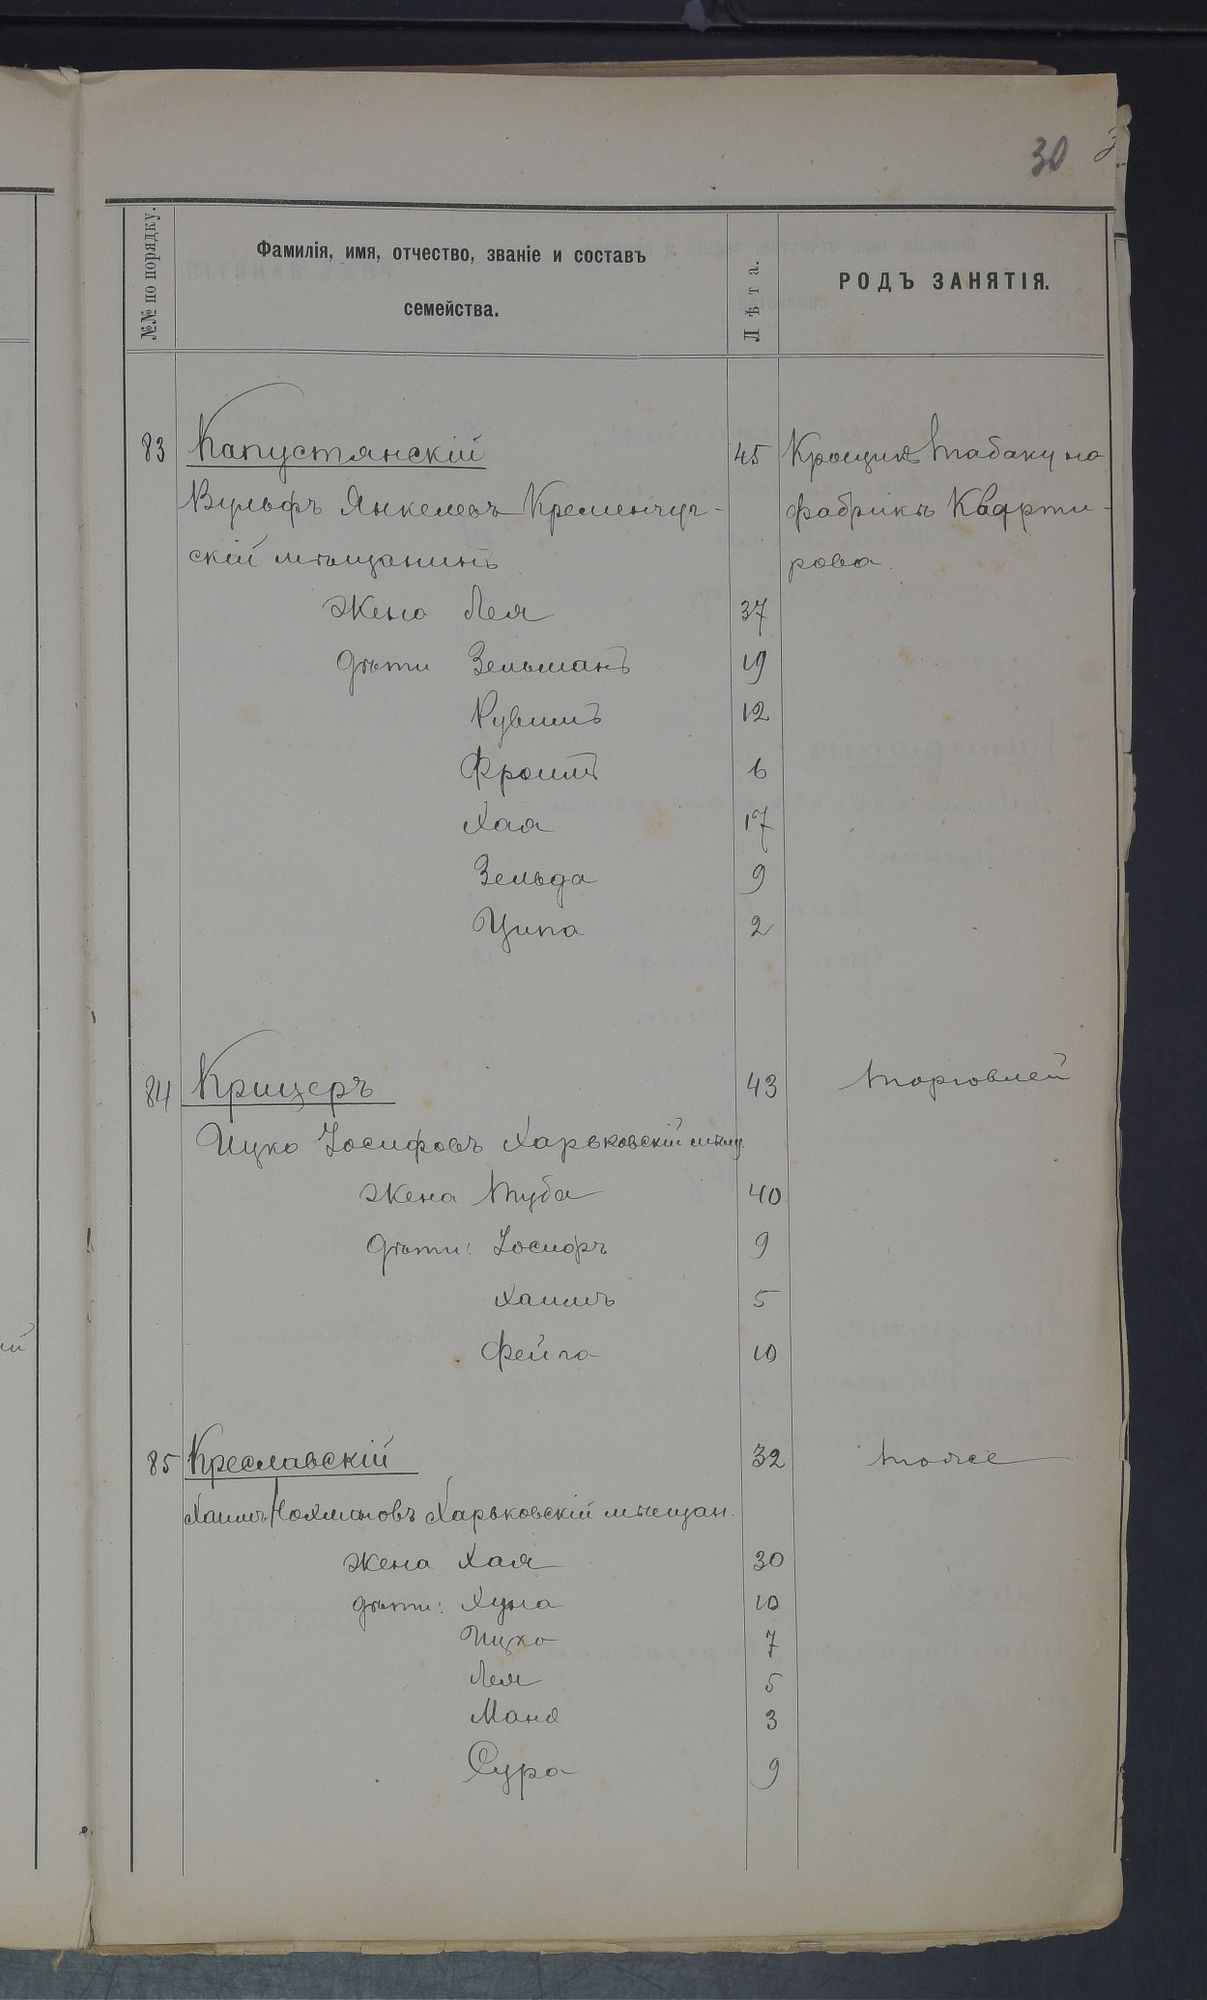 30
№№ по порядку.
Фамилія, имя, отчество, званіе и составъ
семейства.
Лѣта.
РОДЪ ЗАНЯТІЯ.
83 Капустянскій 45 Крощикъ табаку на
Вульфъ Янкелевъ Кременчуг- фабрикѣ Кварти-
скій мѣщанинъ рова.
Жена Лея 37
дѣти Зельманъ 19
Рувинъ 12
Фроимъ 6
Хая 17
Зельда 9
Ципа 2
84 Крицеръ 43 Торговлей
Ицко Іосифовъ Харьковскій мѣщ.
Жена Туба 40
дѣти: Іосифъ 9
Хаимъ 5
Фейга 10
85 Креславскій 32 тоже
Хаимъ Нохмановъ Харьковскій мѣщан.
Жена Хая 30
дѣти: Хуна 10
Ицко 7
Лея 5
Маня 3
Сура 9